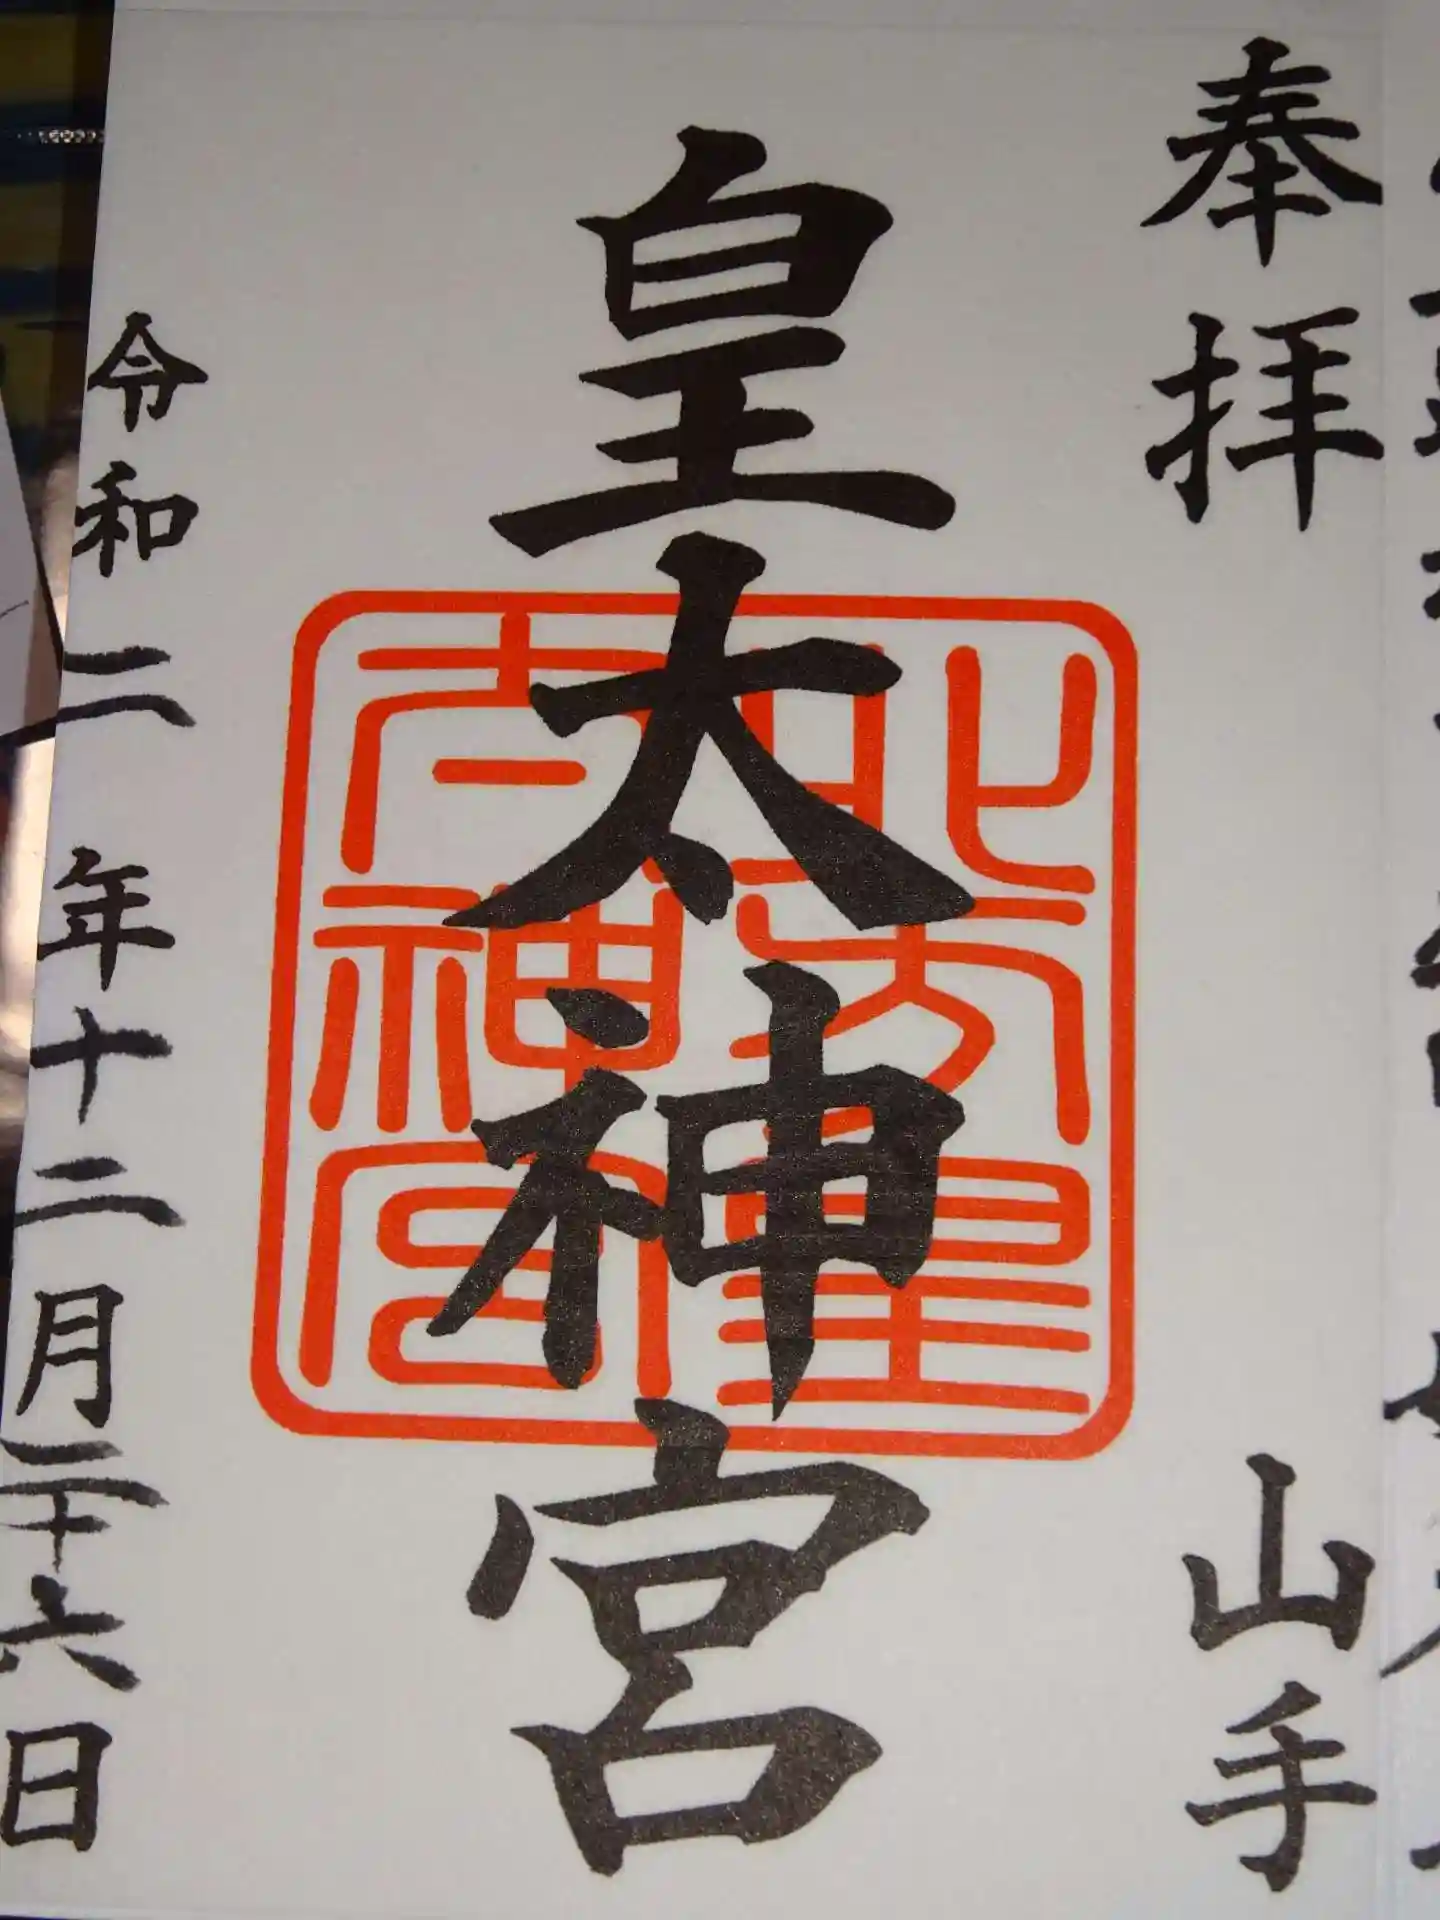 奉拝
山手
皇太神宮
皇
太神宮
令和二年十二月二十六日